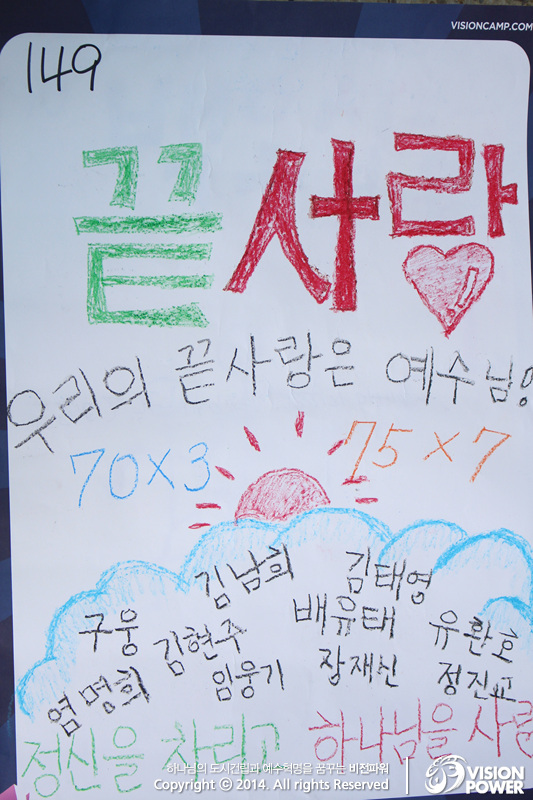 VISIONCAMP.COM
149
끝사랑
우리의 끝사랑은 예수님!
70×3 75×7
김남희 김태영
구웅 김현주 배유태 유환호
염명희 임웅기 장재신 정진교
정신을 차리고 하나님을 사랑
하나님의 도시건립과 예수혁명을 꿈꾸는 비전파워
Copyright ⓒ 2014. All rights Reserved
VISION POWER